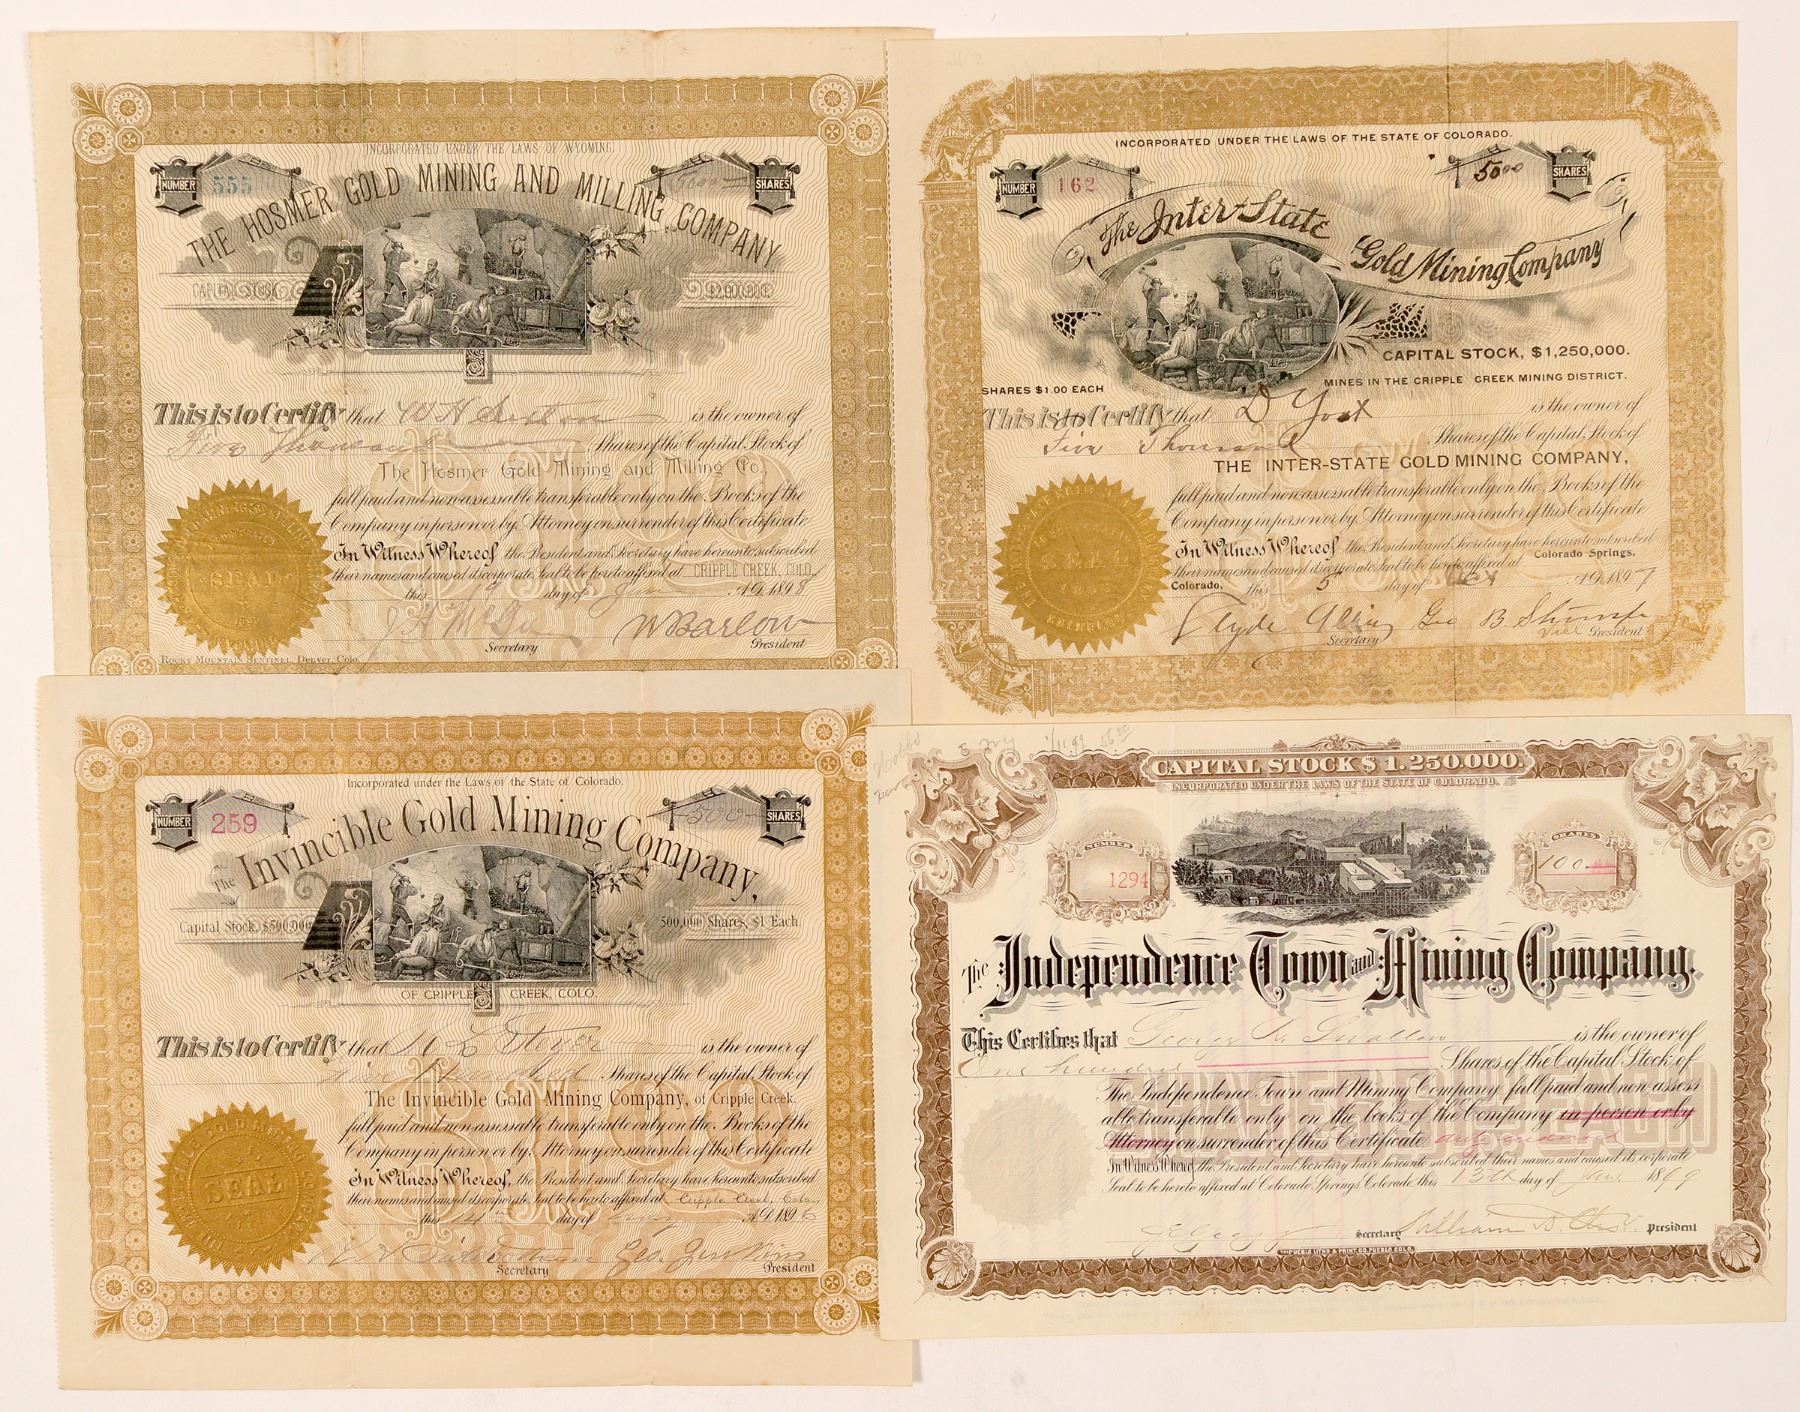 INCORPORATED UNDER THE LAWS OF WYOMING.
NUMBER 555
5000 SHARES
THE HOSMER GOLD MINING AND MILLING COMPANY
CAPITAL STOCK $2,000,000.
This is to Certify that W H is the owner of
Five Thousand Shares of the Capital Stock of
The Hosmer Gold Mining and Milling Co.,
full paid and non-assessable transferable only on the Books of the
Company in person or by Attorney on surrender of this Certificate
In Witness Whereof the President and Secretary have hereunto subscribed
their names and caused its corporate Seal to be hereto affixed at CRIPPLE CREEK, COLO.,
this 19 day of A.D. 1898
SEAL
J H W Barlow
Secretary President
ROCKY MOUNTAIN SENTINEL, DENVER, COLO.
INCORPORATED UNDER THE LAWS OF THE STATE OF COLORADO.
NUMBER 162
5000 SHARES
The Inter-State Gold Mining Company
CAPITAL STOCK, $1,250,000.
SHARES $1.00 EACH
MINES IN THE CRIPPLE CREEK MINING DISTRICT.
This is to Certify that D Yost is the owner of
Five Thousand Shares of the Capital Stock of
THE INTER-STATE GOLD MINING COMPANY,
full paid and non-assessable transferable only on the Books of the
Company in person or by Attorney on surrender of this Certificate
In Witness Whereof the President and Secretary have hereunto subscribed
their names and caused its corporate Seal to be hereto affixed at Colorado Springs,
Colorado, this 5 day of A.D. 1897
SEAL
Clyde Geo B
Secretary Vice President
Incorporated under the Laws of the State of Colorado.
NUMBER 259
500 SHARES
The Invincible Gold Mining Company,
Capital Stock, $500,000
500,000 Shares, $1 Each.
OF CRIPPLE CREEK, COLO.
This is to Certify that is the owner of
Five Hundred Shares of the Capital Stock of
The Invincible Gold Mining Company, of Cripple Creek,
full paid and non-assessable transferable only on the Books of the
Company in person or by Attorney on surrender of this Certificate
In Witness Whereof, the President and Secretary have hereunto subscribed
their names and caused its corporate Seal to be hereto affixed at Cripple Creek, Colo.,
this 14 day of A.D. 1896
THE INVINCIBLE GOLD MINING COMPANY
SEAL
Geo. Jenkins
Secretary President
CAPITAL STOCK $1,250,000.
INCORPORATED UNDER THE LAWS OF THE STATE OF COLORADO.
NUMBER
1294
SHARES
100
The Independence Town and Mining Company.
This Certifies that George is the owner of
One hundred Shares of the Capital Stock of
The Independence Town and Mining Company, full paid and non-assess
able transferable only on the books of the Company in person or by
Attorney on surrender of this Certificate duly endorsed
In Witness Whereof, the President and Secretary have hereunto subscribed their names and caused its corporate
Seal to be hereto affixed at Colorado Springs Colorado this 13th day of Jan. 1899
Secretary William President
THE PUEBLO LITHO & PRINT. CO. PUEBLO, COLO.